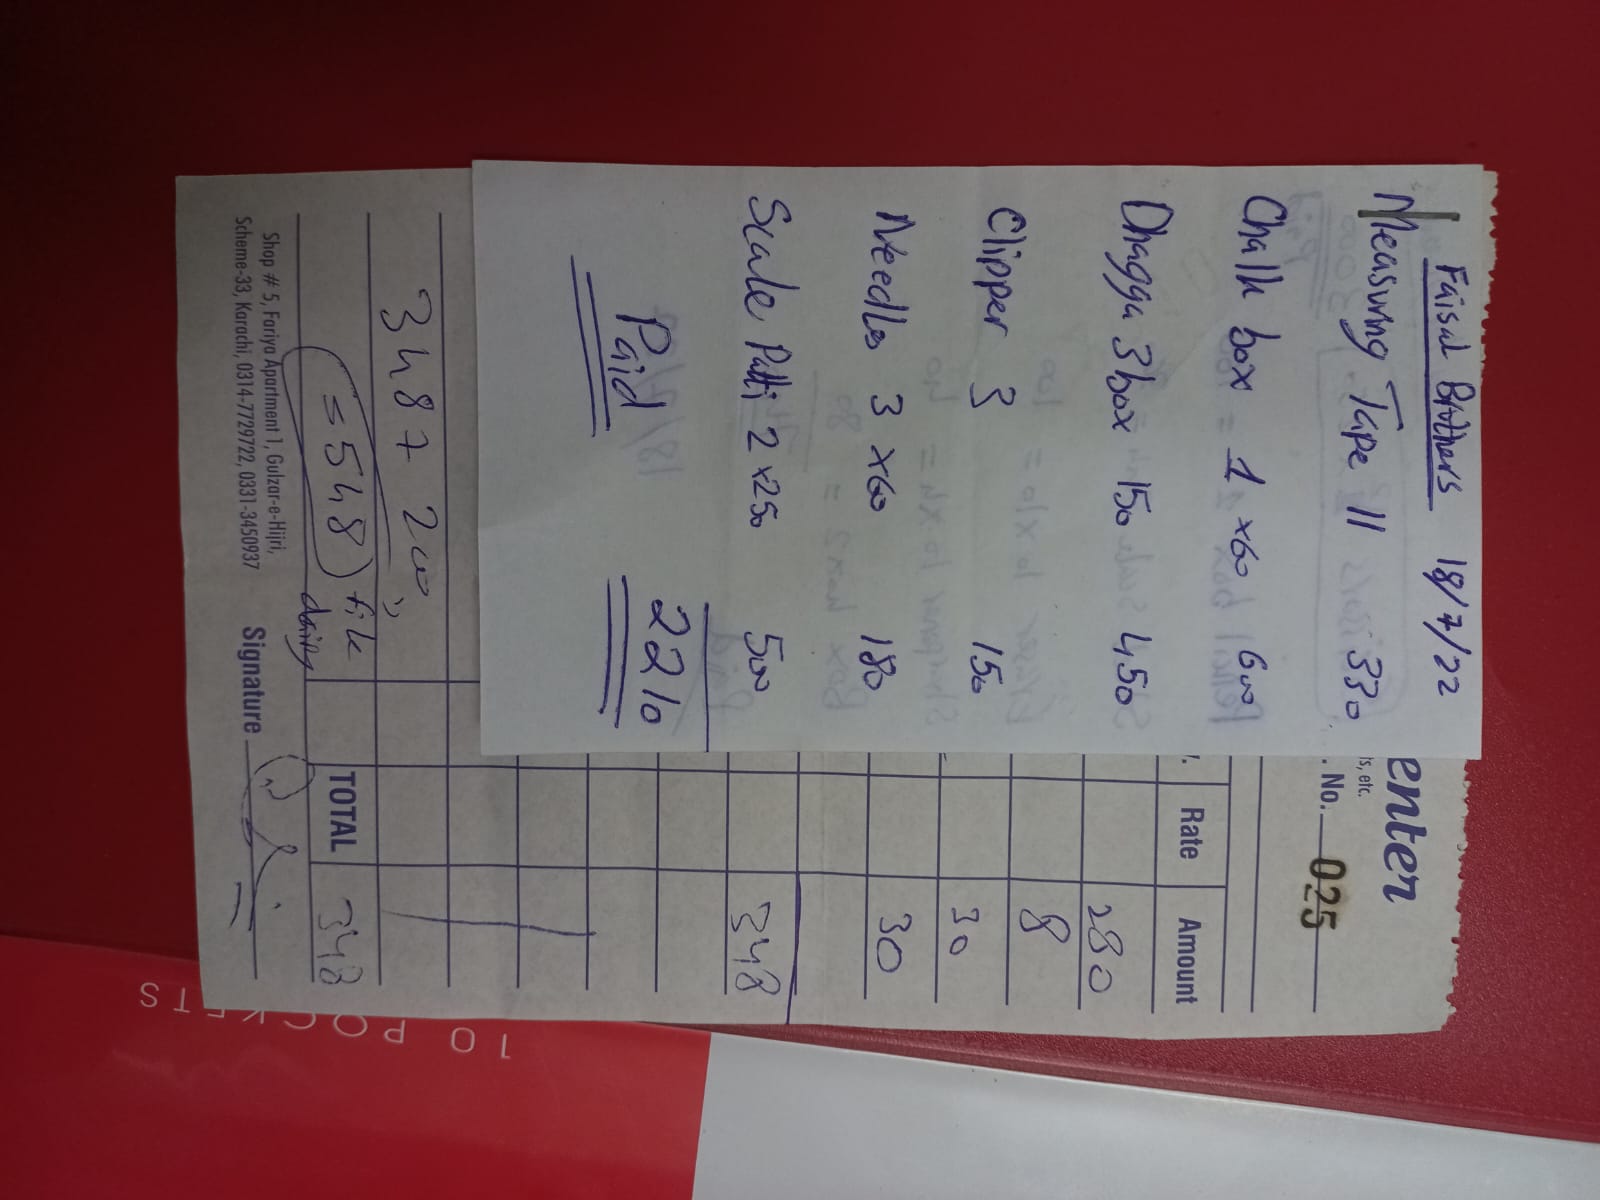 Faisal Brothers 18/7/22
Measuring Tape 11 330
Chalk box = 1 x60 600
Dhagga 3 box x 150 450
Clipper 3 150
Needles 3 x60 180
Scale Patti 2 x250 500
2210
Paid
enter
ts, etc.
. No. 025
Rate Amount
280
8
30
30
348
348 + 200
= 548 file
TOTAL 348
Signature
Shop # 5, Fariya Apartment 1, Gulzar-e-Hijri,
Scheme-33, Karachi, 0314-7729722, 0331-3450937
10 POCKETS